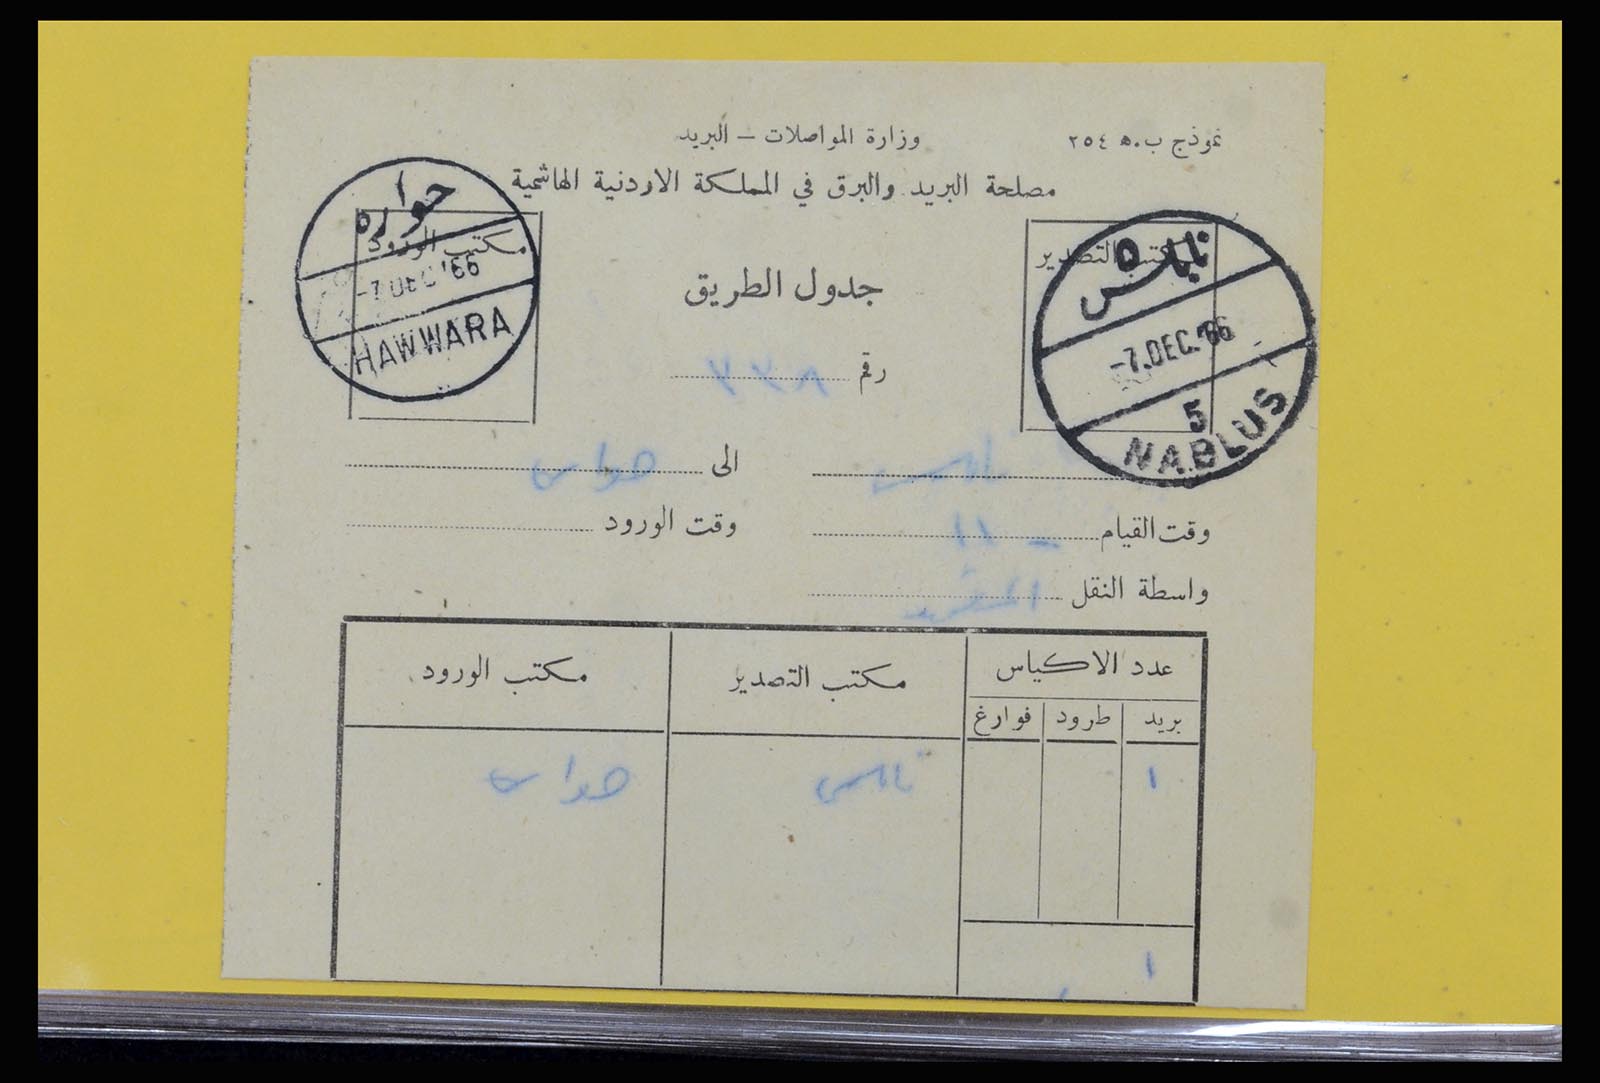 نموذج ب.ه ٢٥٤
وزارة المواصلات - البريد
مصلحة البريد والبرق في المملكة الاردنية الهاشمية
مكتب التصدير
مكتب الورود
نابلس ٥
-7.DEC.'66
5
NABLUS
حواره
-7 DEC '66
HAWWARA
جدول الطريق
رقم
نابلس الى حواره
وقت القيام ١١ - وقت الورود
واسطة النقل
عدد الاكياس مكتب التصدير مكتب الورود
بريد طرود فوارغ
١ نابلس حواره
١